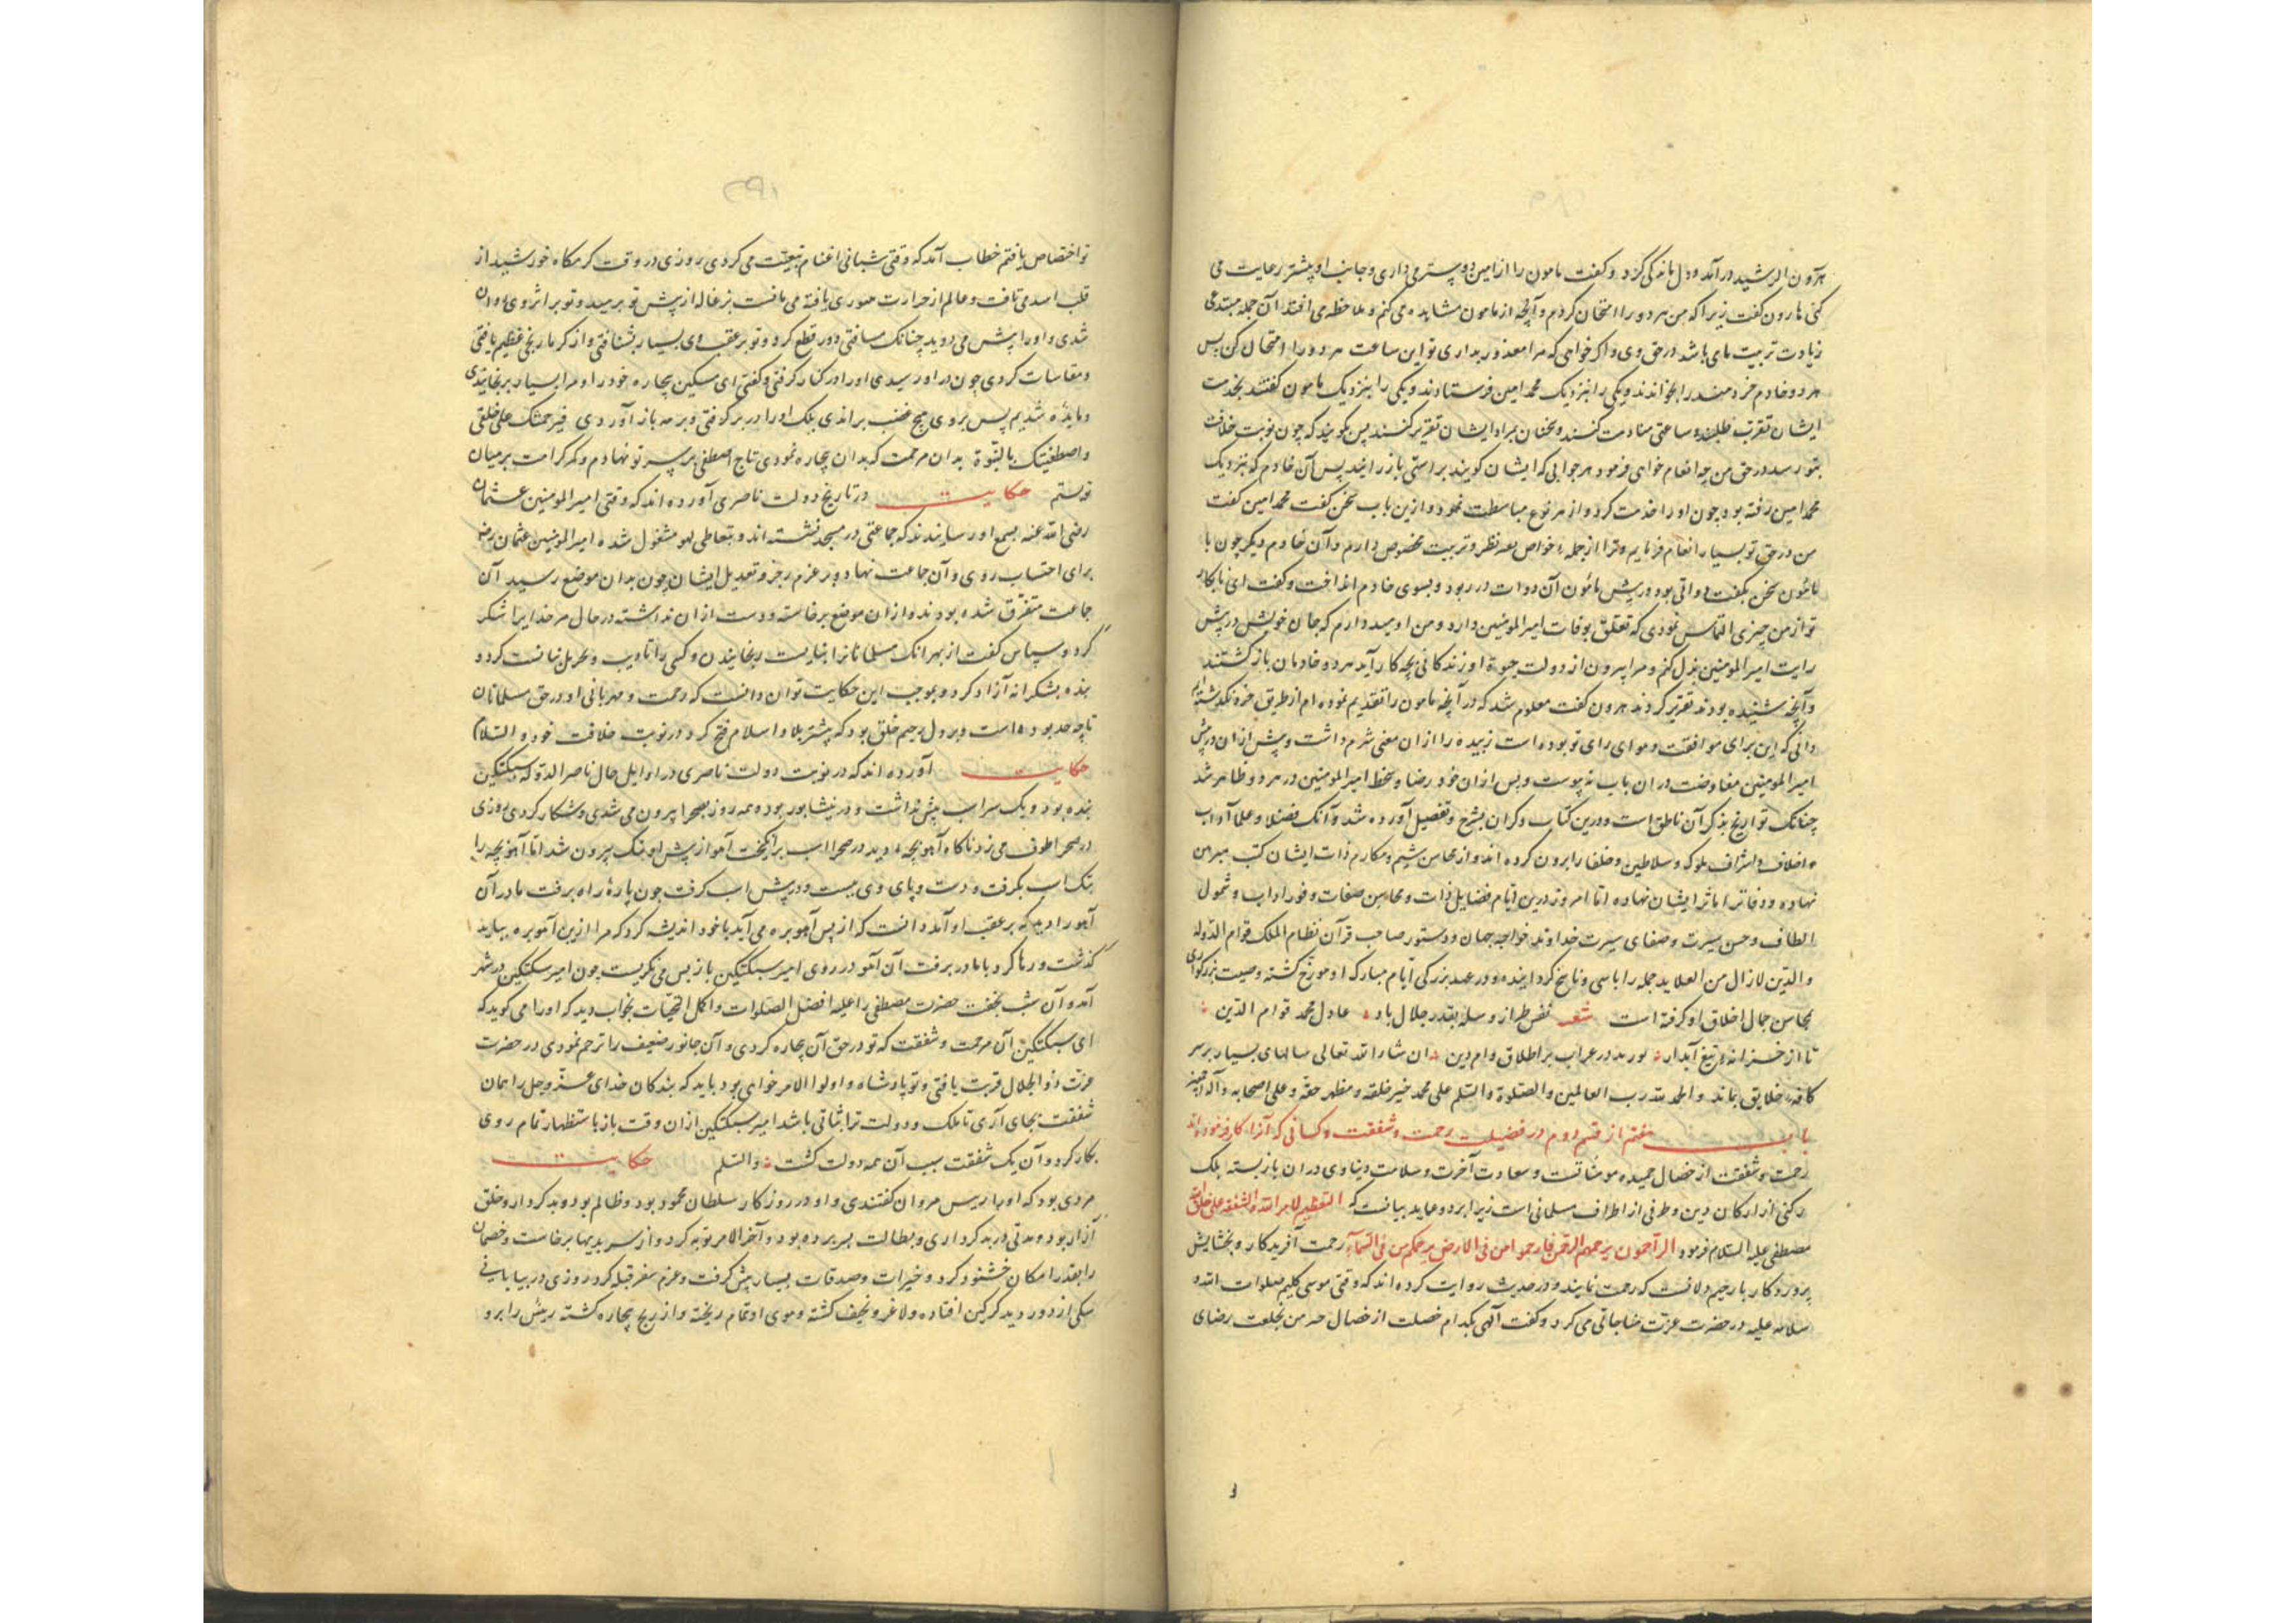 هرون الرشید درآمد و دل ماندگی کرد و گفت مامون را از امین دوستر می داری و جانب او بیشتر رعایت می
کنی هارون گفت زیرا که من هر دو را امتحان کردم و آنچه از مامون مشاهده می کنم و ملاحظه می افتد آن جمله مستدعی
زیادت تربیت مای باشد در حق وی و اگر خواهی که مرا معذور بداری تو این ساعت هر دو را امتحان کن پس
هر دو خادم خردمند را بخواندند و یکی را بنزدیک محمد امین فرستادند و یکی را بنزدیک مامون گفتند بخدمت
ایشان تقرب طلبند و ساعتی منادمت کنند و سخنان بمراد ایشان تقریر کنند پس بگویند که چون نوبت خلافت
بتو رسد در حق من چه انعام خواهی فرمود هر جوابی که ایشان گویند براستی باز رانید پس آن خادم که بنزدیک
محمد امین رفته بود چون او را خدمت کرد و از هر نوع مباسطت نمود و ازین باب سخن گفت محمد امین گفت
من در حق تو بسیار انعام فرمایم و ترا از جمله خواص بعه نظر و تربیت مخصوص دارم و آن خادم دیگر چون با
مامون سخن بگفت دواتی بود در پیش مامون آن دوات در ربود و بسوی خادم انداخت و گفت ای نابکار
تو از من چیزی التماس نمودی که تعلق بوفات امیر المومنین دارد و من اومید دارم که جان خویش در پیش
رایت امیر المومنین بذل کنم و مرا بیرون از دولت حیوة او زندگانی بچه کار آید هر دو خادمان بازگشتند
و آنچه شنیده بودند تقریر کردند هرون گفت معلوم شد که در آنچه مامون را تقدیم نموده ام از طریق خرد نگذشته ام
دانی که این برای موافقت و هوای رای تو بوده است زبیده را ازان معنی شرم داشت و پیش ازان در پیش
امیر المومنین مفاوضت دران باب نه پیوست و پس ازان خود رضا و سخط امیر المومنین در هر دو ظاهر شد
چنانک تواریخ بذکر آن ناطق است و درین کتاب ذکر آن بشرح و تفصیل آورده شد و آنک فضلا و علما آداب
و اخلاق و اشراف ملوک و سلاطین و خلفا را برون کرده اند و از محاسن شیم و مکارم ذات ایشان کتب مبرهن
نهاده و دفاتر اماثر ایشان نهاده اما امروز درین ایام فضایل ذات و محاسن صفات و فور آداب و شمول
الطاف و حسن سیرت و صفای سیرت خداوند خواجه جهان و دستور صاحب قرآن نظام الملک قوام الدوله
والدین لازال من العلا ید جمله را ماسی و ناسخ گردانیده و در عهد بزرگی ایام مبارک او مورخ گشته و صیت بزرگواری
محاسن جمال اخلاق او گرفته است شعر نفس طراز وسله بقدر جلال باد عادل محمد قوام الدین
تا از خزانه تیغ آبدار بورید در عراب بر اطلاق وام دین ان شاء الله تعالی سالهای بسیار بر سر
کافه خلایق بماند والحمد لله رب العالمین والصلوة والسلم علی محمد خیر خلقه و مظهر حقه و علی اصحابه و آله
باب هفتم از قسم دوم در فضیلت رحمت و شفقت و کسانی که آنرا کار فرموده اند
رحمت و شفقت از خصال حمیده مومنانست و سعادت آخرت و سلامت دنیاوی دران بازبسته بلک
رکنی از ارکان دین و طرفی از اطراف مسلمانی است زیرا بر دو عماید بیانست که التعظیم لامر الله والشفقة علی خلق الله
مصطفی علیه السلام فرمود الراحمون یرحمهم الرحمن فارحموا من فی الارض یرحمکم من فی السماء رحمت آفریدگار و بخشایش
پروردگار بار حیم دلانست که رحمت نمایند و در حدیث روایت کرده اند که وقتی موسی کلیم صلوات الله و
سلامه علیه در حضرت عزت مناجاتی می کرد و گفت آلهی بکدام خصلت از خصال حسن بخلعت رضای
تو اختصاص یافتم خطاب آمد که وقتی شبانی اغنام تبعیت می کردی روزی در وقت گرمگاه خورشید از
قلب اسد می تافت و عالم از حرارت یافته می یافت بزغاله از پیش تو برمید و تو بر اثر وی دوان
شدی و او را پیش می دوید چنانک مسافتی دور قطع کرد و تو بر عقب وی بسیار بشتافتی و از گرما رنجی عظیم یافتی
و مقاسات کردی چون در او رسیدی او را در کنار گرفتی و گفتی ای مسکین بیچاره خود را و مرا بسیار برنجانیدی
و مانده شدیم پس بر وی هیچ غضب براندی بلک او را در بر گرفتی و برمه باز آوردی فبرحمتک علی خلقی
واصطفیتک بالنبوة بدان مرحمت که بدان بیچاره نمودی تاج اصطفی بر سر تو نهادم و کمر کرامت بر میان
تو بستم حکایت در تاریخ دولت ناصری آورده اند که وقتی امیر المومنین عثمان
رضی الله عنه بسمع او رسانیدند که جماعتی در مسجد نشسته اند و بتعاطی لهو مشغول شده امیر المومنین عثمان رضه
برای احتساب روی و آن جماعت نهاد و بر عزم زجر و تعدیل ایشان چون بدان موضع رسید آن
جماعت متفرق شده بودند و ازان موضع برخاسته و دست ازان نداشته در حال مر خدایرا شکر
کرد و سپاس گفت از بهر آنک مسلمانانرا نبایست رنجانیدن و کسی را تادیب و تحریل نبایست کرد و
بنده بشکرانه آزاد کرد و بموجب این حکایت توان دانست که رحمت و مهربانی او در حق مسلمانان
تا چه حد بوده است و بر دل رحیم خلق بود که بیشتر بلاد اسلام فتح کرد در نوبت خلافت خود والسلام
حکایت آورده اند که در نوبت دولت ناصری در اوایل حال ناصر الدوله سبکتکین
بنده بود و یک سر اسب بیش نداشت و در نیشابور بوده همه روز بصحرا بیرون می شدی و شکار کردی روزی
در صحرا طوف می زد ناگاه آهو بچه دید در صحرا اسب برانگیخت آهو از پیش او بتک بیرون شد اما آهو بچه را
بتک اسب بگرفت و دست و پای وی ببست و در پیش اسب گرفت چون پاره راه برفت مادر آن
آهو را دید که بر عقب او آمد دانست که از پس آهو بره می آید با خود اندیشه کرد که مرا ازین آهو بره بیاید
گذشت و رها کرد با مادر برفت آن آهو در روی امیر سبکتکین باز پس می نگریست چون امیر سبکتکین در شهر
آمد و آن شب بخفت حضرت مصطفی را علیه افضل الصلوات واکمل التحیات بخواب دید که او را می گوید که
ای سبکتکین آن مرحمت و شفقت که تو در حق آن بیچاره کردی و آن جانور ضعیف را ترحم نمودی در حضرت
عزت ذو الجلال قربت یافتی و تو پادشاه و اولوا الامر خواهی بود باید که بندگان خدای عز و جل را همان
شفقت بجای آری تا ملک و دولت ترا ثباتی باشد امیر سبکتکین ازان وقت باز باستظهار تمام روی
بکار کرد و آن یک شفقت سبب آن همه دولت گشت والسلم حکایت
مردی بود که او را ادریس مروان گفتندی و او در روزگار سلطان محمود بود و ظالم بود و بد کردار و خلق
آزار بود و مدتی در بد کرداری و بطالت بسر برده بود و آخر الامر توبه کرد و از سر بدیها برخاست و خصمان
را بقدر امکان خشنود کرد و خیرات و صدقات بسیار پیش گرفت و عزم سفر قبله کرد روزی در بیابانی
سگی از دور دید گرگین افتاده و لاغر و نحیف گشته و موی او تمام ریخته و از رنج بیچاره گشته ریش را برو